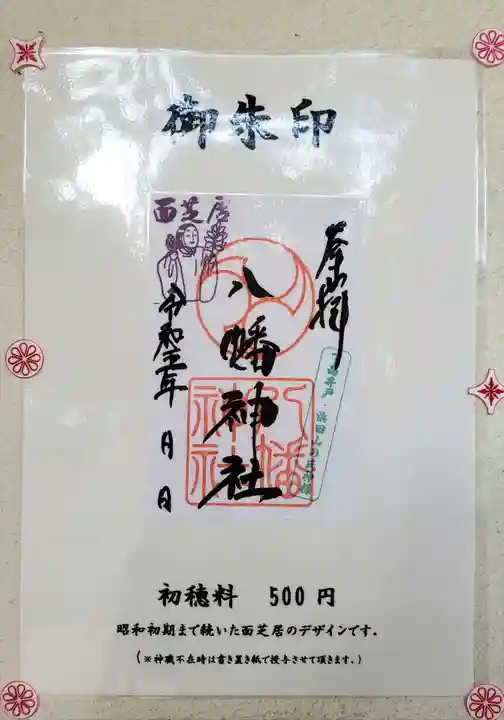 御朱印
奉拝
八幡神社
八幡神社
面芝居
令和五年 月 日
初穂料 500円
昭和初期まで続いた面芝居のデザインです。
(※神職不在時は書き置き紙で授与させて頂きます。)